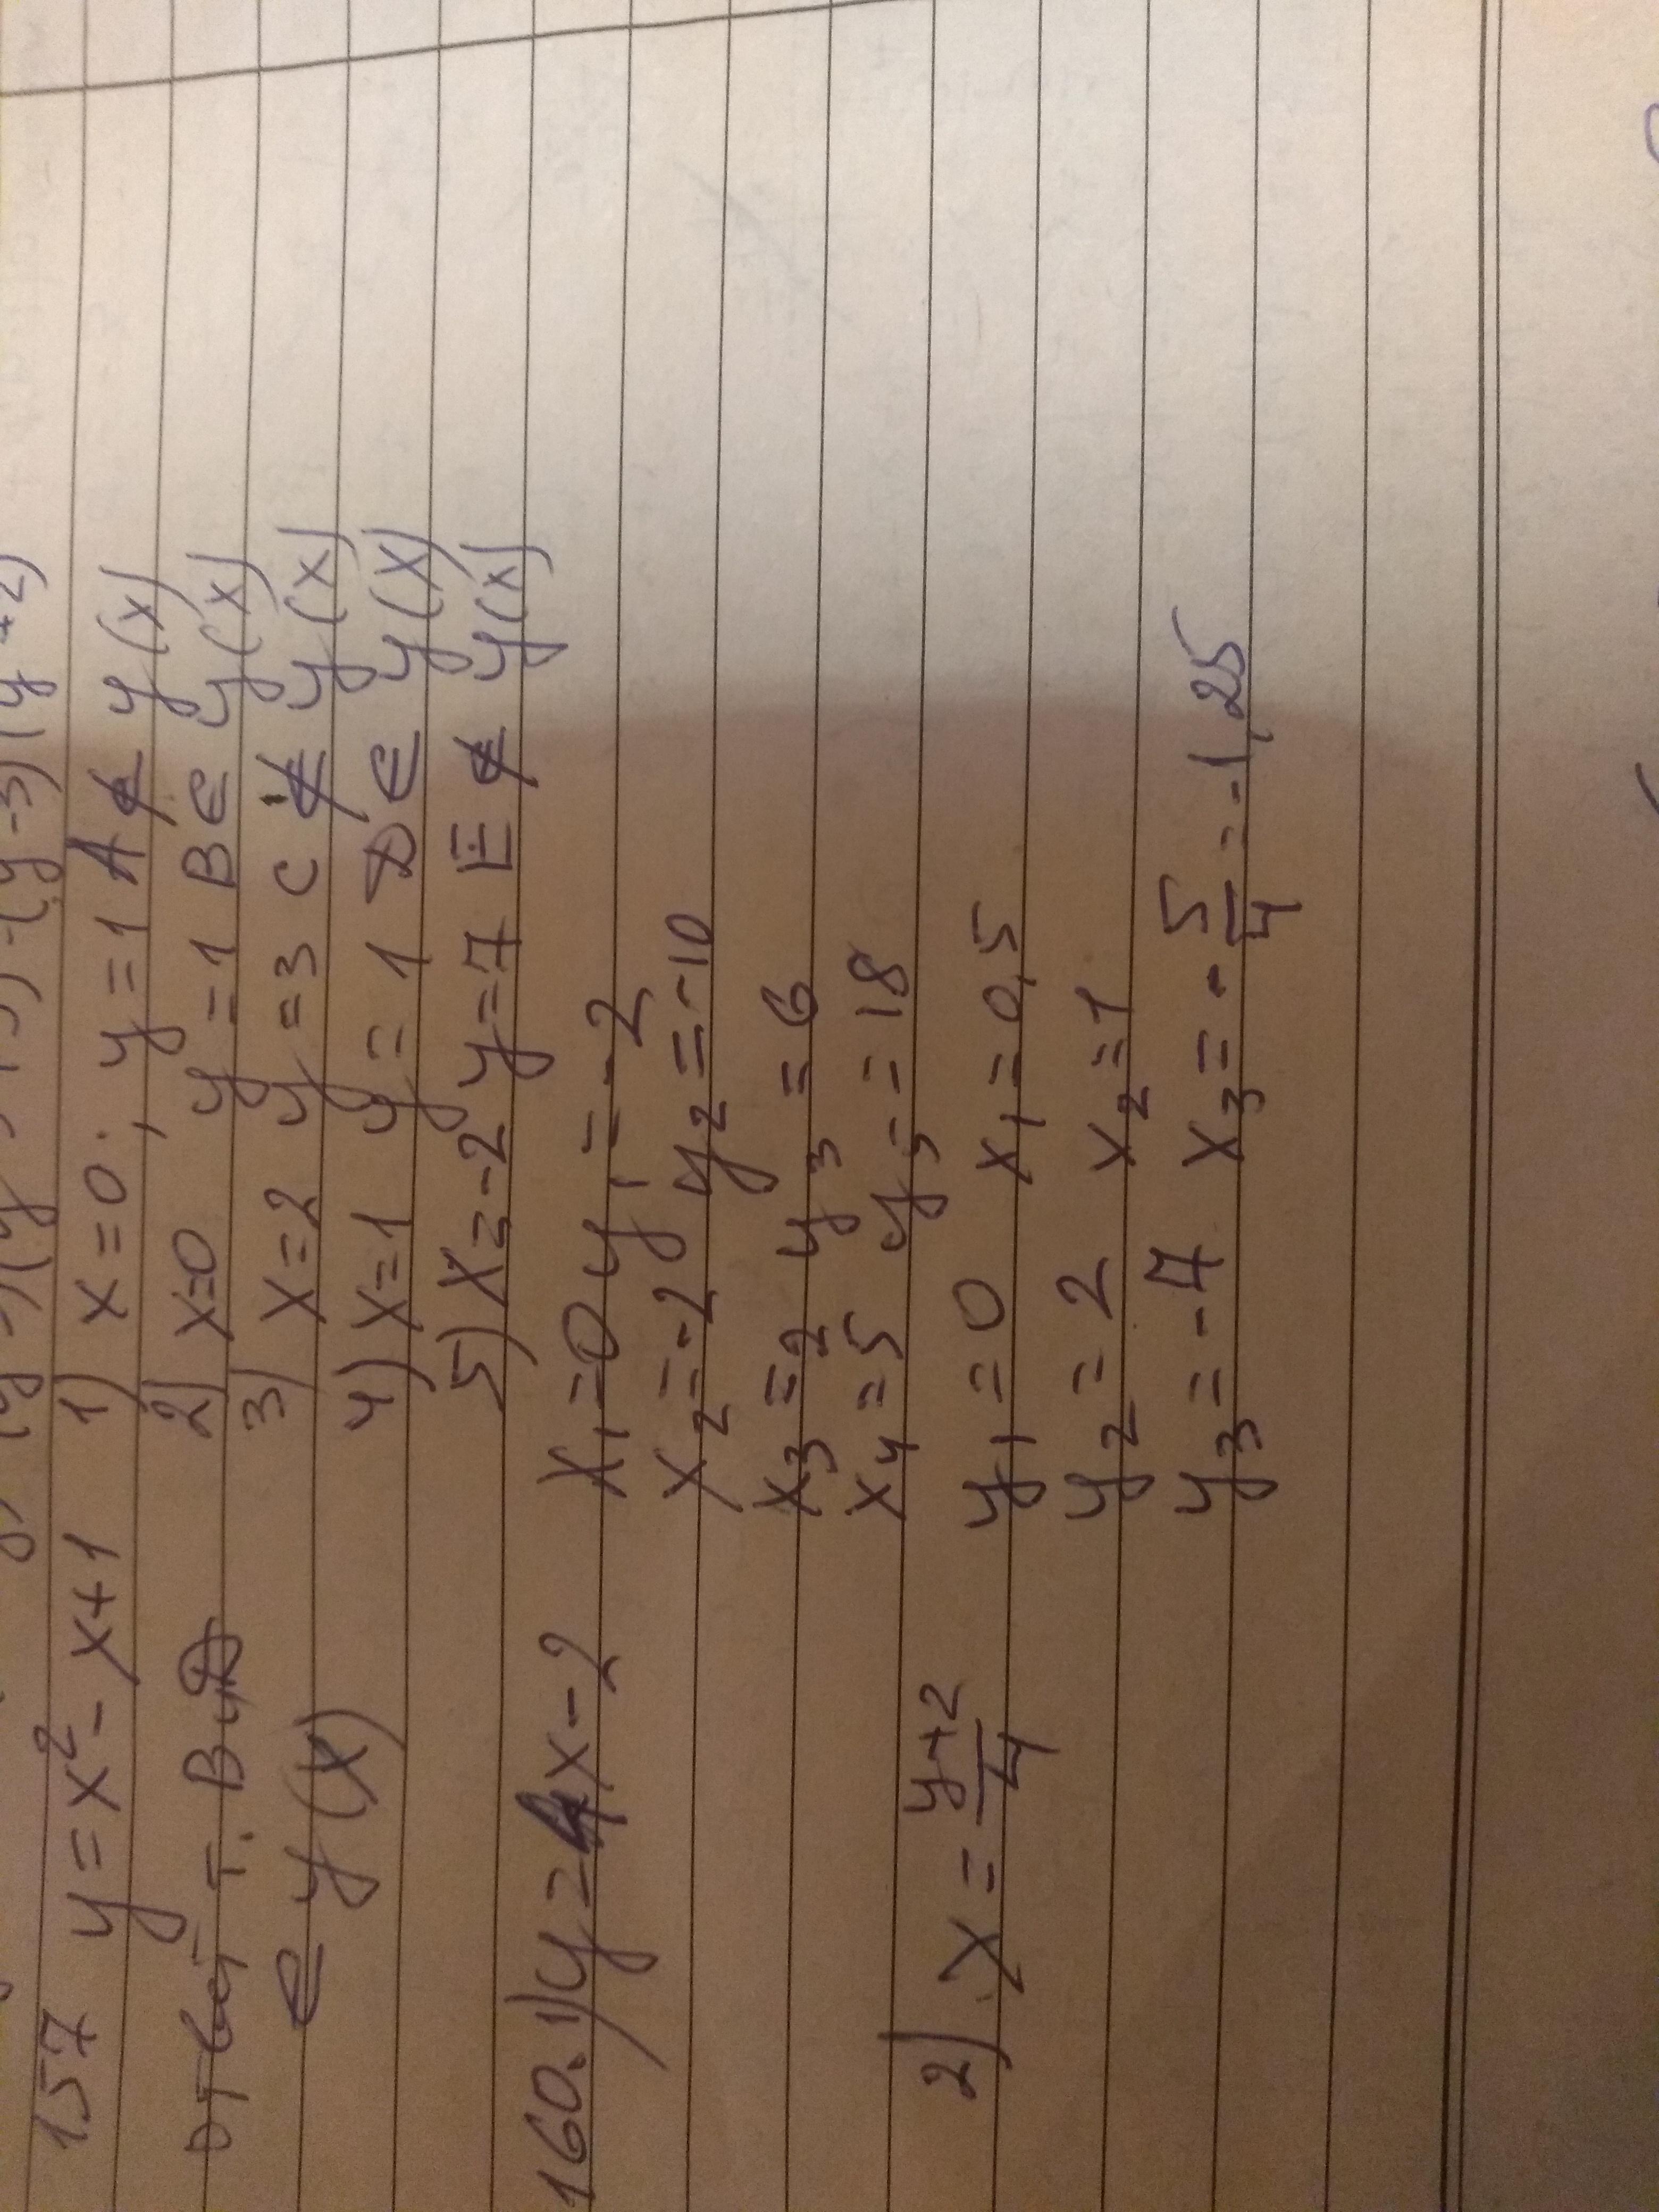 157 y = x² - x+1 1) x=0; y=1 A ∉ y(x)
Ответ т. B и D 2) x=0 y=1 B ∈ y(x)
∈ y(x) 3) x=2 y=3 C ∉ y(x)
4) x=1 y=1 D ∈ y(x)
5) x=-2 y=7 E ∉ y(x)
160. 1) y=4x-2 x₁=0 y₁=-2
x₂=-2 y₂=-10
x₃=2 y₃=6
x₄=5 y₅=18
2) x = (y+2)/4 y₁=0 x₁=0,5
y₂=2 x₂=1
y₃=-7 x₃=-5/4=-1,25